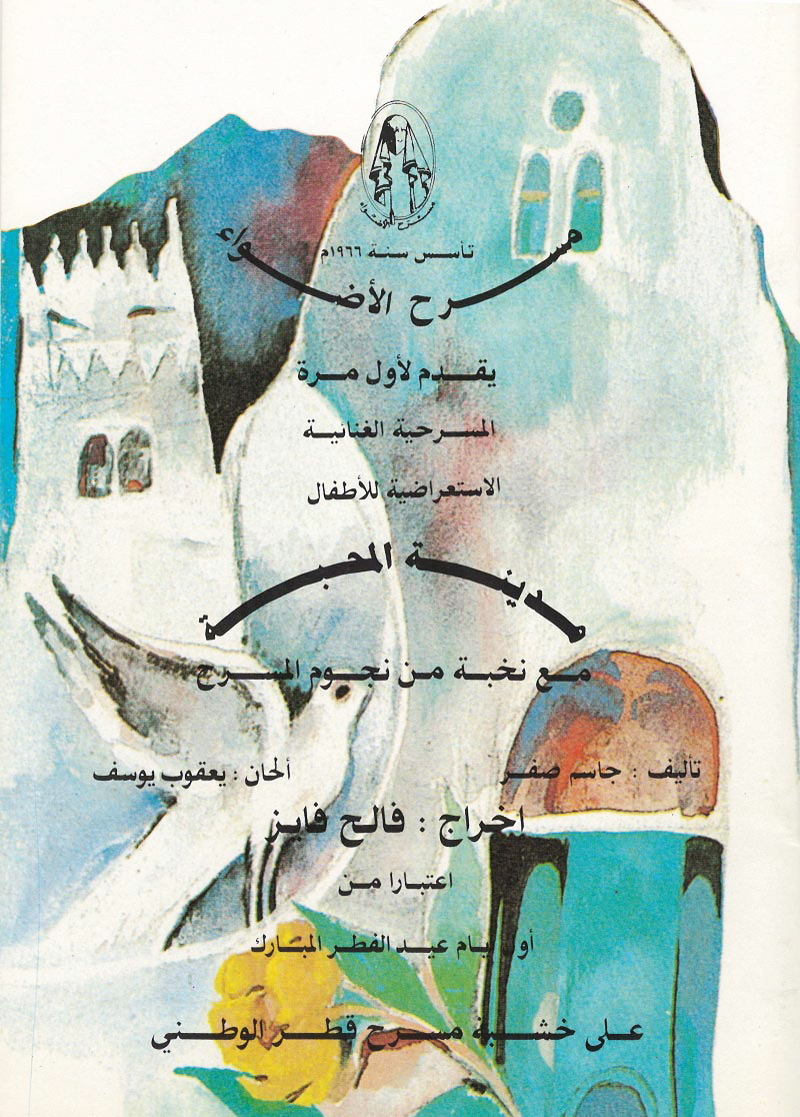 مسرح الأضواء
تأسس سنة ١٩٦٦م
مسرح الأضواء
يقدم لأول مرة
المسرحية الغنائية
الاستعراضية للأطفال
مدينة المحبة
مع نخبة من نجوم المسرح
تأليف : جاسم صفر
ألحان : يعقوب يوسف
اخراج : فالح فايز
اعتبارا من
أول يام عيد الفطر المبارك
على خشبة مسرح قطر الوطني